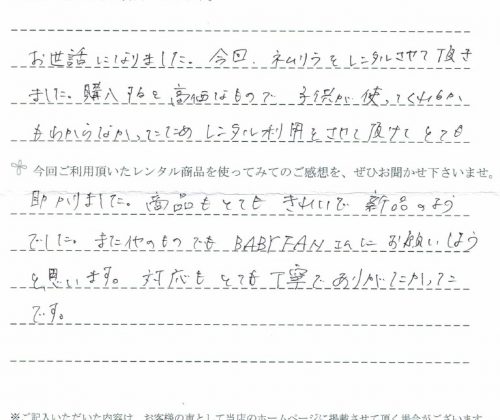 お世話になりました。今回、ネムリラをレンタルさせて頂き
ました。購入すると高価なもので 子供が使ってくれるか
もわからなかったため レンタル利用をさせて頂けて とても
今回ご利用頂いたレンタル商品を使ってみてのご感想を、ぜひお聞かせ下さいませ。
助かりました。商品もとてもきれいで新品のよう
でした。また他のものでもBABYFANさんにお願いしよう
と思います。対応もとても丁寧でありがたかった
です。
※ご記入いただいた内容は、お客様の声として当店のホームページに掲載させて頂く場合がございます